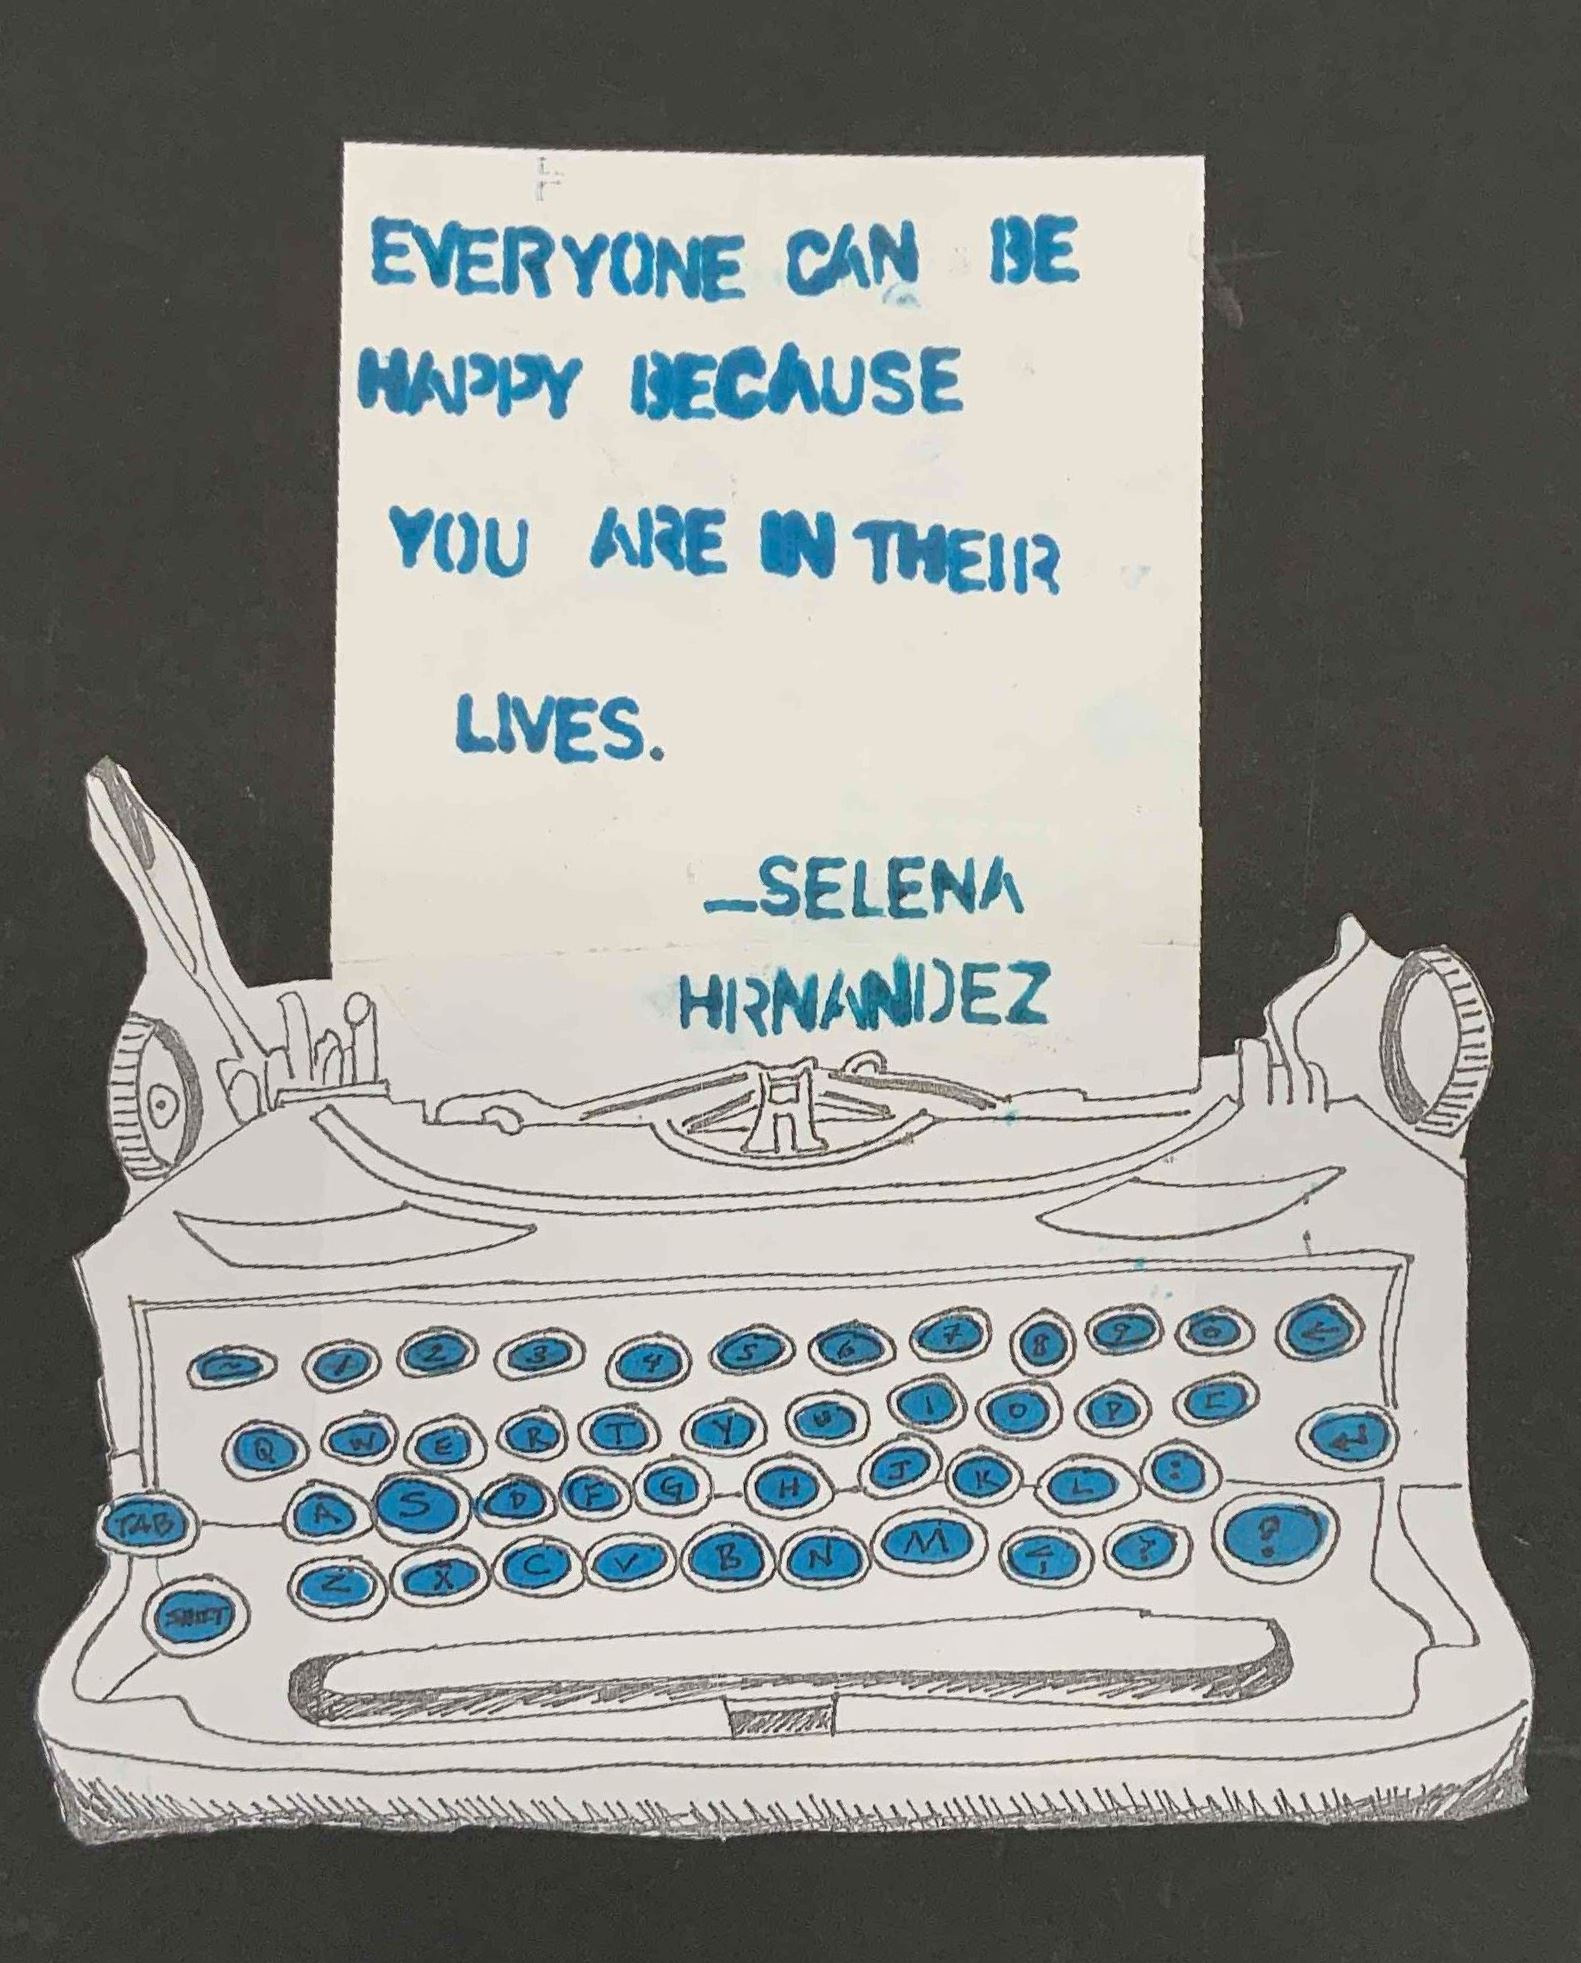 EVERYONE CAN BE
HAPPY BECAUSE
YOU ARE IN THEIR
LIVES.
_SELENA
HIRNANDEZ
~ 1 2 3 4 5 6 7 8 9 0 ←
Q W E R T Y U I O P C ↵
TAB A S D F G H J K L :
SHIFT Z X C V B N M ?